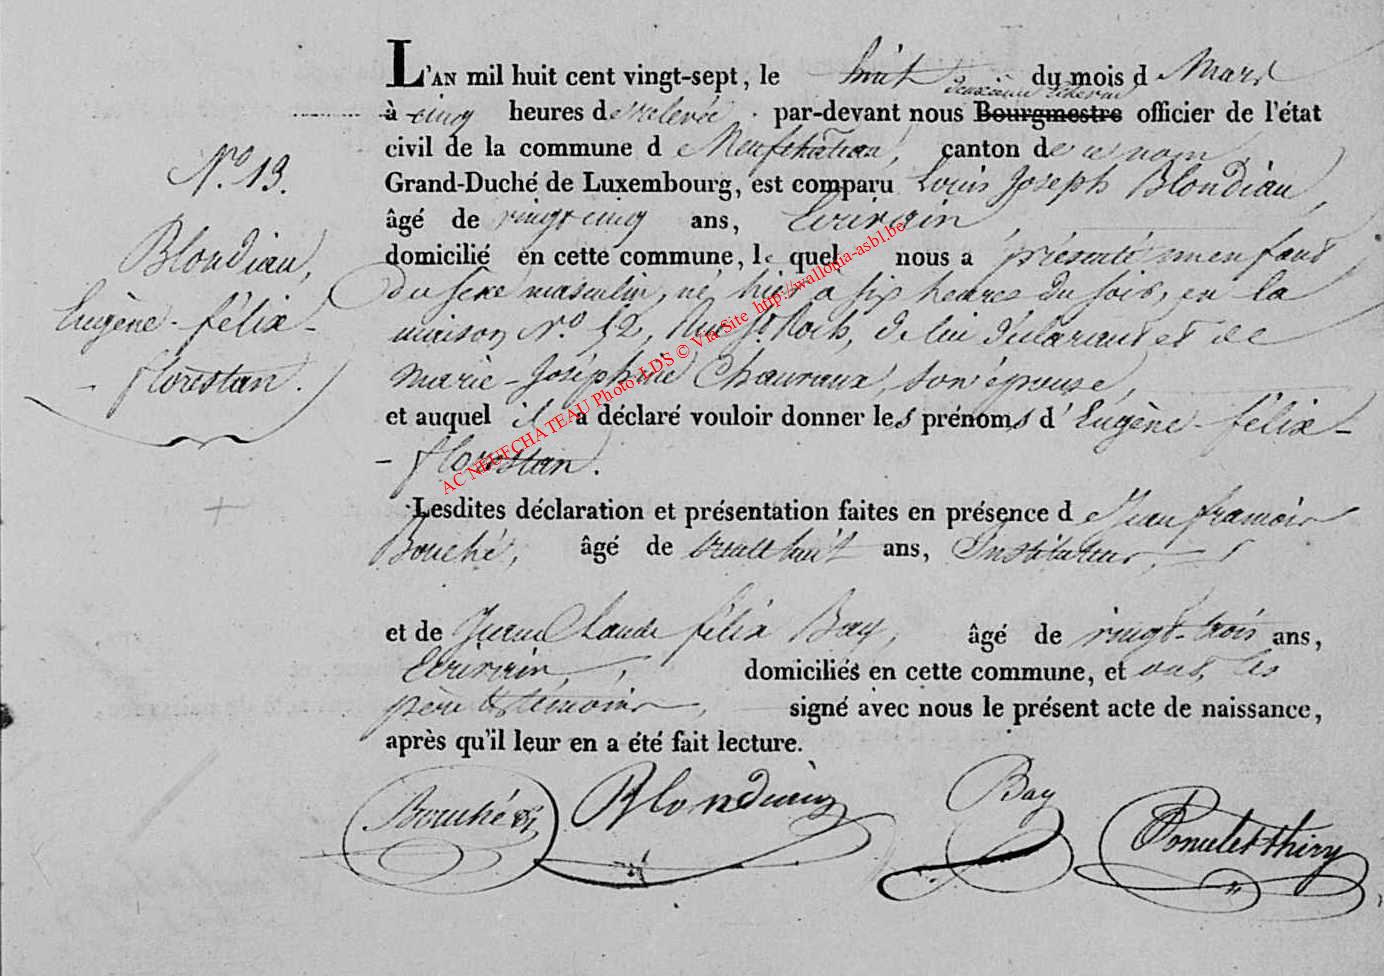 L'AN mil huit cent vingt-sept, le huit du mois d Mars
deuxième Echevin
à cinq heures de relevée par-devant nous Bourgmestre officier de l'état
civil de la commune d e Neufchâteau, canton de ce nom,
N.o 13.
Grand-Duché de Luxembourg, est comparu Louis Joseph Blondiau,
âgé de vingt cinq ans, Ecrivain,
Blondiau,
domicilié en cette commune, le quel nous a présenté un enfant
du sexe masculin, né hier à six heures du soir, en la
Eugène-félix-
maison N.o 12, Rue St. Roch, de lui déclarant et de
-florestan.
marie-Joséphine son épouse,
et auquel il a déclaré vouloir donner les prénoms d'Eugène-félix-
-florestan.
AC NEUFCHATEAU Photo. LDS © Via Site http://wallonia-asbl.be
Lesdites déclaration et présentation faites en présence d e Jean françois
Bouché, âgé de trente huit ans, Instituteur,
et de Jean Claude félix Bay, âgé de vingt-trois ans,
Ecrivain, domiciliés en cette commune, et ont les
père et témoins, signé avec nous le présent acte de naissance,
après qu'il leur en a été fait lecture.
Bouché Blondiau Bay